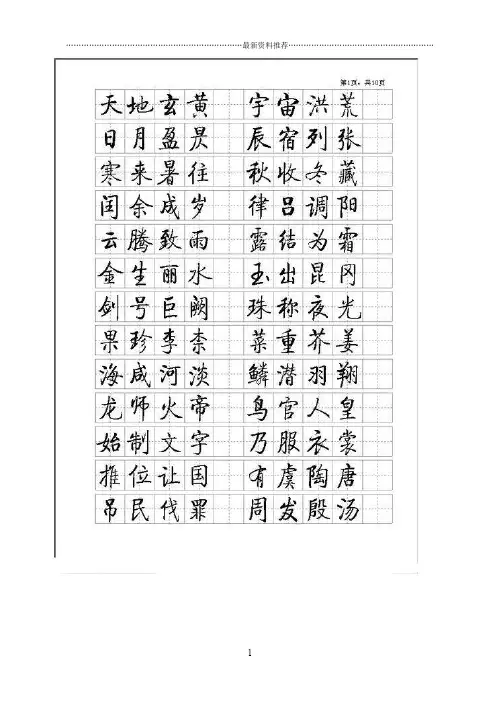 ⋯⋯⋯⋯⋯⋯⋯⋯⋯⋯⋯⋯⋯⋯⋯⋯⋯⋯最新资料推荐⋯⋯⋯⋯⋯⋯⋯⋯⋯⋯⋯⋯⋯⋯
第1页,共10页
天地玄黄 宇宙洪荒
日月盈昃 辰宿列张
寒来暑往 秋收冬藏
闰余成岁 律吕调阳
云腾致雨 露结为霜
金生丽水 玉出昆冈
剑号巨阙 珠称夜光
果珍李柰 菜重芥姜
海咸河淡 鳞潜羽翔
龙师火帝 鸟官人皇
始制文字 乃服衣裳
推位让国 有虞陶唐
吊民伐罪 周发殷汤
1